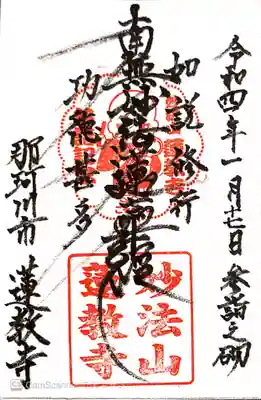 令和四年一月十七日 参詣之砌
如説修行
南無妙法蓮華経
功徳甚多
那珂川市 蓮教寺
妙法山
蓮教寺
CamScanner